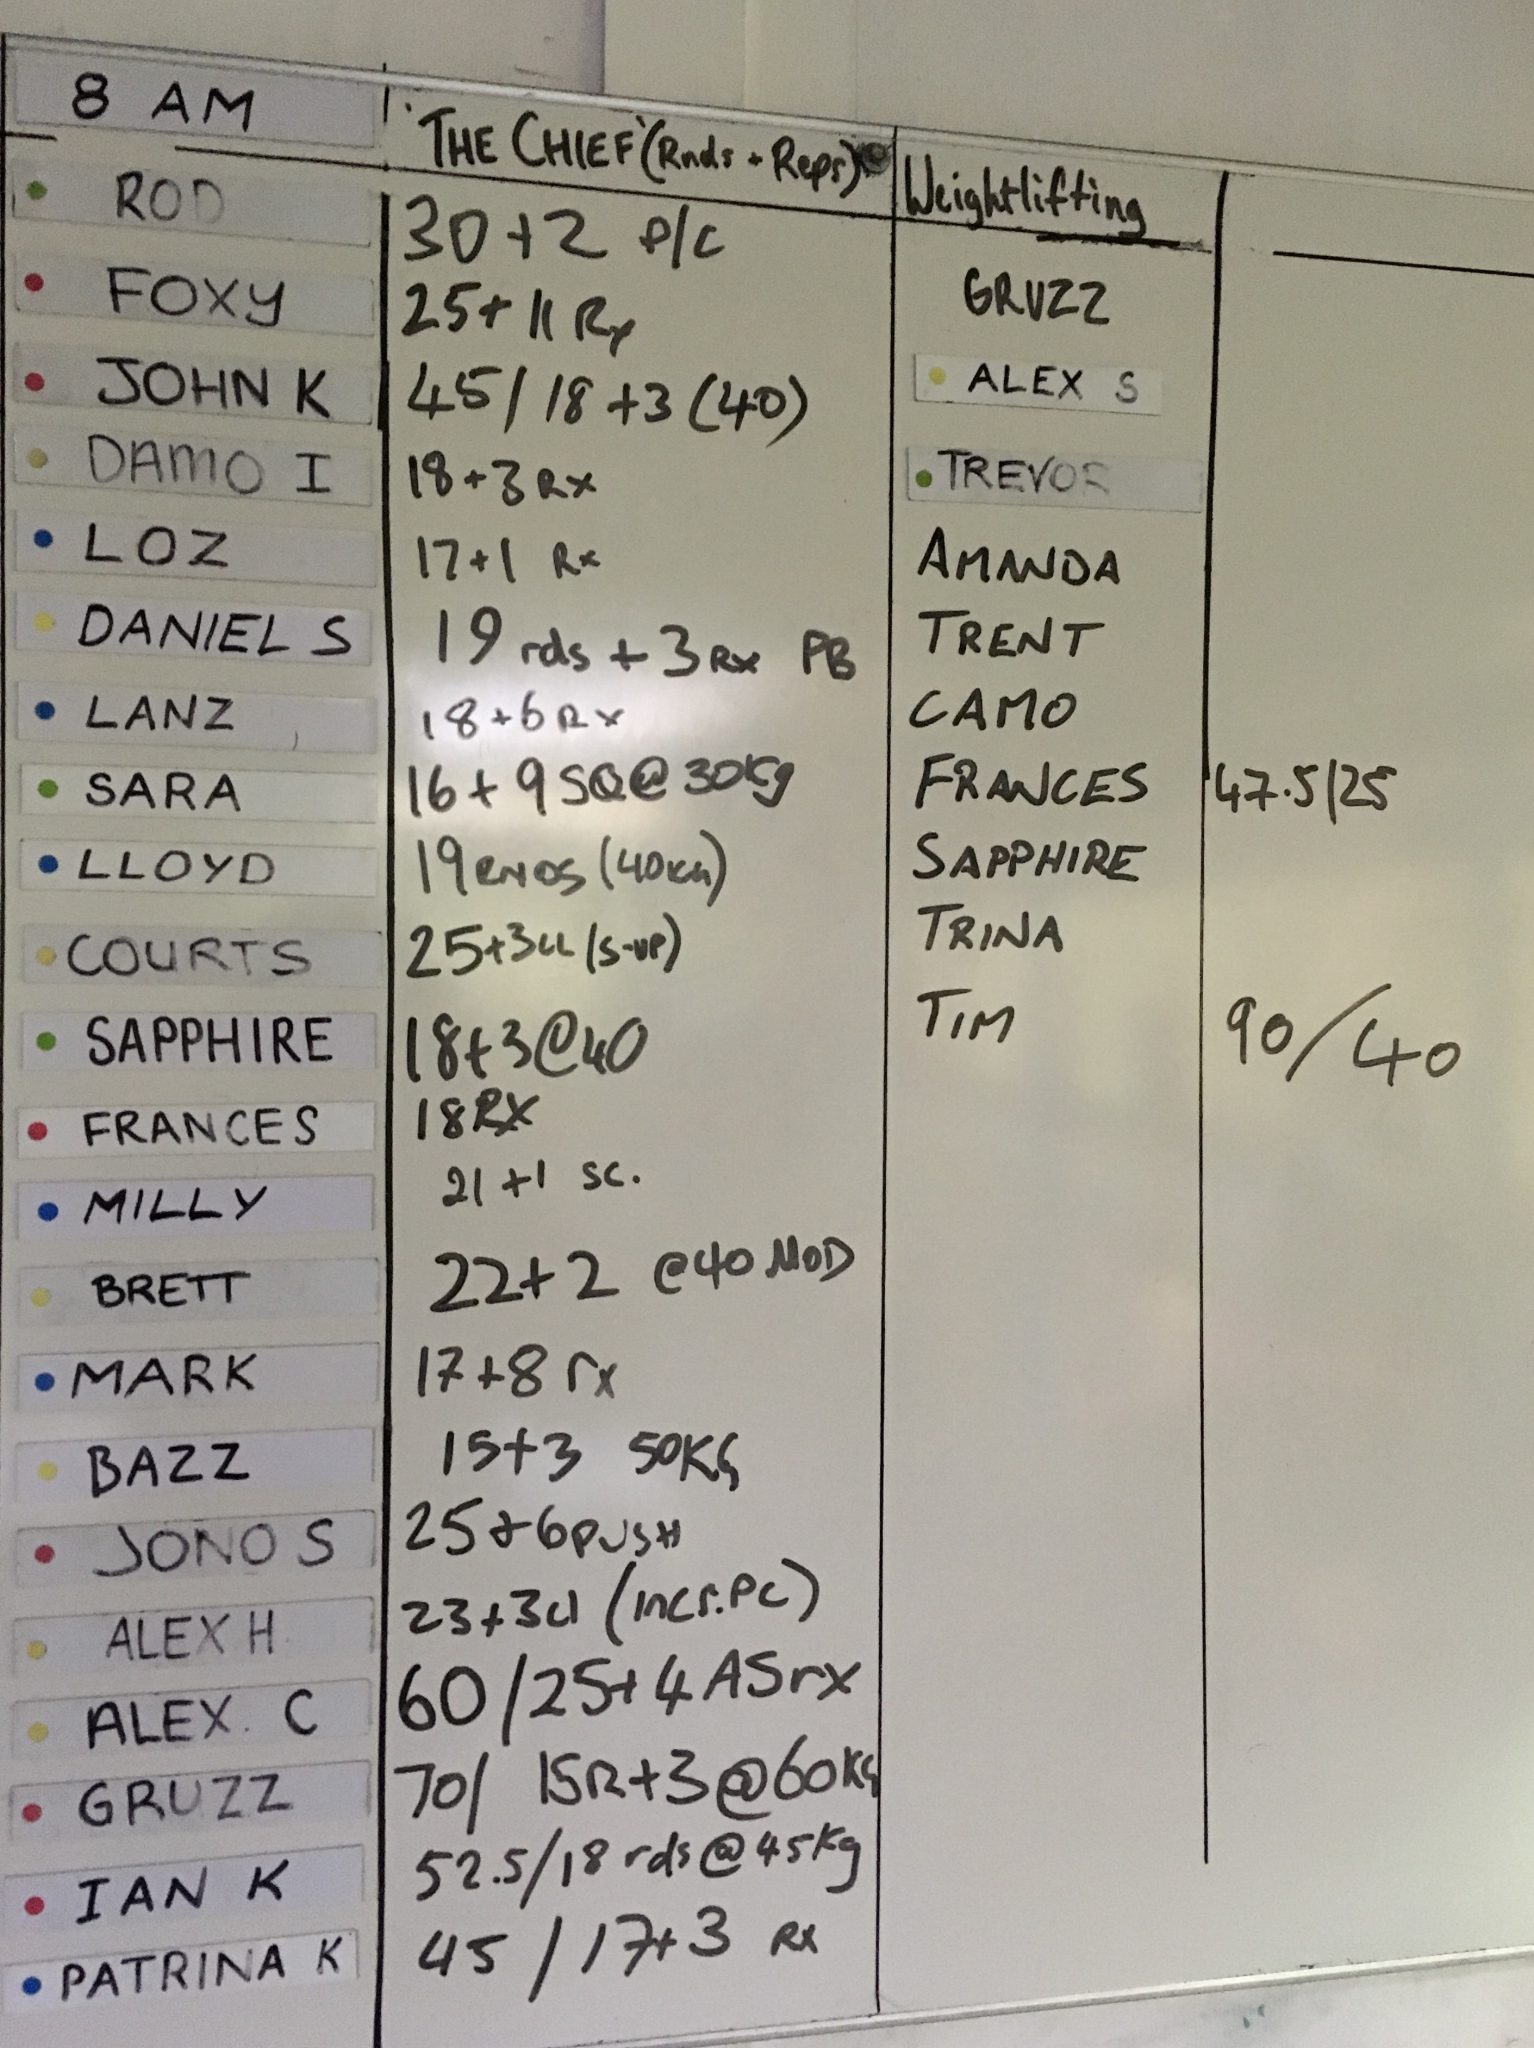 8 AM
'THE CHIEF' (Rnds + Reps)
Weightlifting
ROD 30+2 P/C
FOXY 25+11 Rx
GRUZZ
JOHN K 45/18+3 (40)
ALEX S
DAMO I 18+3 Rx
TREVOR
LOZ 17+1 Rx
AMANDA
DANIEL S 19 rds + 3 Rx PB
TRENT
LANZ 18+6 Rx
CAMO
SARA 16+9 SQ@30Kg
FRANCES 47.5/25
LLOYD 19 RNDS (40KG)
SAPPHIRE
COURTS 25+3 (S-UP)
TRINA
SAPPHIRE 18+3@40
TIM 90/40
FRANCES 18RX
MILLY 21+1 SC.
BRETT 22+2 @40 MOD
MARK 17+8 rx
BAZZ 15+3 50KG
JONO S 25+6 PUSH
ALEX H 23+3cl (incr.PC)
ALEX. C 60/25+4 AS rx
GRUZZ 70/ 15R+3@60KG
IAN K 52.5/18 rds@45Kg
PATRINA K 45/17+3 Rx